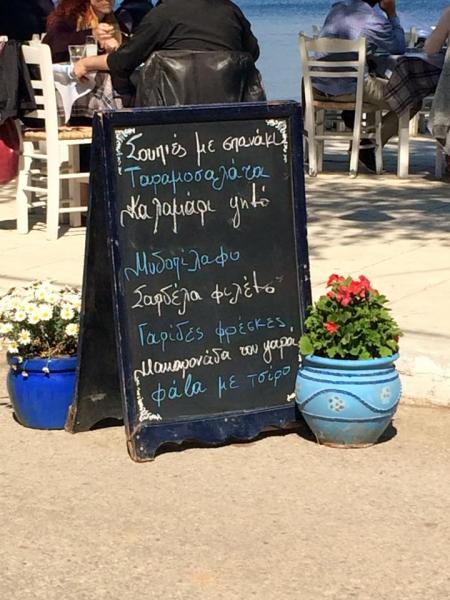 Σουπιές με σπανάκι
Ταραμοσαλάτα
Καλαμάρι ψητό
Μυδοπίλαφο
Σαρδέλα φιλέτο
Γαρίδες φρέσκες
Μακαρονάδα του ψαρά
φάβα με τσίρο